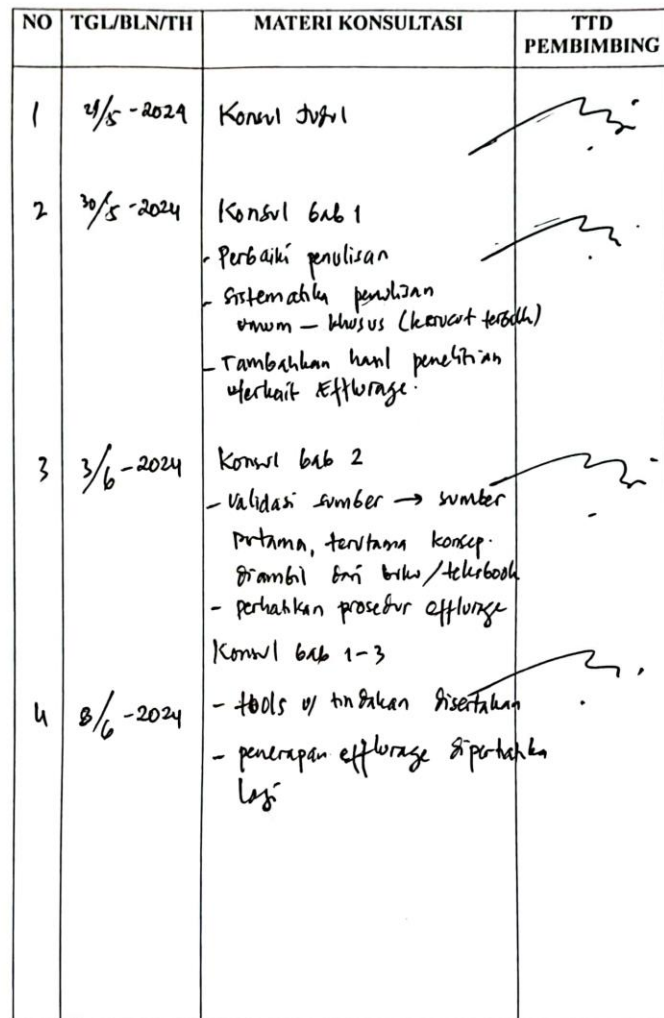 NO TGL/BLN/TH MATERI KONSULTASI TTD PEMBIMBING
1 21/5-2024 Konsul Judul
2 30/5-2024 Konsul bab 1
- Perbaiki penulisan
- Sistematika penulisan
umum - khusus (kerucut terbalik)
- Tambahkan hasil penelitian
terkait Efflurage.
3 3/6-2024 Konsul bab 2
- Validasi sumber → sumber
pertama, terutama konsep.
diambil dari buku/tekxbook
- perhatikan prosedur efflurage
Konsul bab 1-3
4 8/6-2024 - tools u/ tindakan disertakan
- penerapan efflurage diperhatikan
lagi